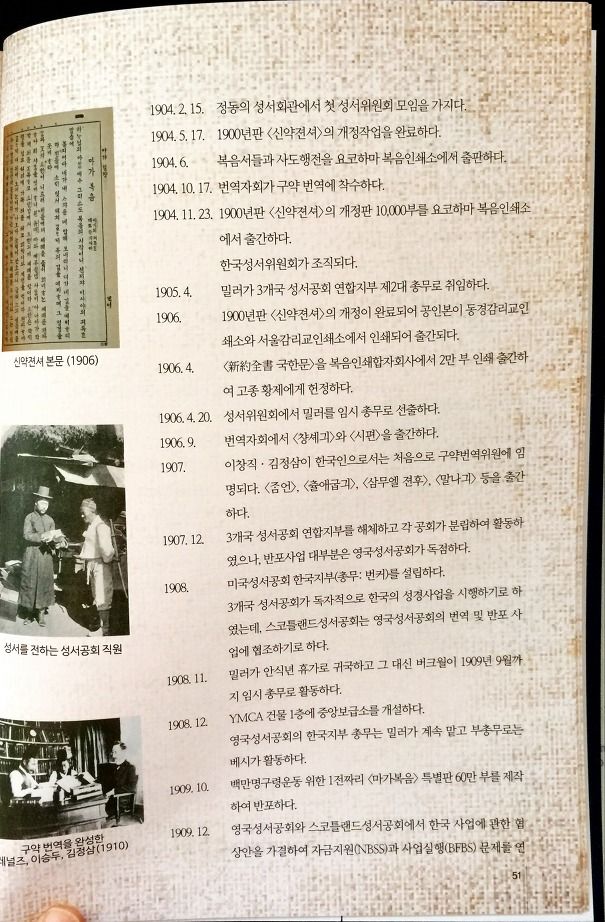 1904. 2. 15. 정동의 성서회관에서 첫 성서위원회 모임을 가지다.
1904. 5. 17. 1900년판 〈신약젼셔〉의 개정작업을 완료하다.
1904. 6. 복음서들과 사도행전을 요코하마 복음인쇄소에서 출판하다.
1904. 10. 17. 번역자회가 구약 번역에 착수하다.
1904. 11. 23. 1900년판 〈신약젼셔〉의 개정판 10,000부를 요코하마 복음인쇄소
에서 출간하다.
한국성서위원회가 조직되다.
1905. 4. 밀러가 3개국 성서공회 연합지부 제2대 총무로 취임하다.
1906. 1900년판 〈신약젼셔〉의 개정이 완료되어 공인본이 동경감리교인
쇄소와 서울감리교인쇄소에서 인쇄되어 출간되다.
1906. 4. 〈新約全書 국한문〉을 복음인쇄합자회사에서 2만 부 인쇄 출간하
여 고종 황제에게 헌정하다.
1906. 4. 20. 성서위원회에서 밀러를 임시 총무로 선출하다.
1906. 9. 번역자회에서 〈챵셰긔〉와 〈시편〉을 출간하다.
1907. 이창직 · 김정삼이 한국인으로서는 처음으로 구약번역위원에 임
명되다. 〈좀언〉, 〈츌애굽긔〉, 〈삼무엘 젼후〉, 〈말나긔〉 등을 출간
하다.
1907. 12. 3개국 성서공회 연합지부를 해체하고 각 공회가 분립하여 활동하
였으나, 반포사업 대부분은 영국성서공회가 독점하다.
1908. 미국성서공회 한국지부(총무: 번커)를 설립하다.
3개국 성서공회가 독자적으로 한국의 성경사업을 시행하기로 하
였는데, 스코틀랜드성서공회는 영국성서공회의 번역 및 반포 사
업에 협조하기로 하다.
1908. 11. 밀러가 안식년 휴가로 귀국하고 그 대신 버크월이 1909년 9월까
지 임시 총무로 활동하다.
1908. 12. YMCA 건물 1층에 중앙보급소를 개설하다.
영국성서공회의 한국지부 총무는 밀러가 계속 맡고 부총무로는
베시가 활동하다.
1909. 10. 백만명구령운동 위한 1전짜리 〈마가복음〉 특별판 60만 부를 제작
하여 반포하다.
1909. 12. 영국성서공회와 스코틀랜드성서공회에서 한국 사업에 관한 협
상안을 가결하여 자금지원(NBSS)과 사업실행(BFBS) 문제를 연
신약젼셔 본문 (1906)
성서를 전하는 성서공회 직원
구약 번역을 완성한
레널즈, 이승두, 김정삼(1910)
마가복음
51